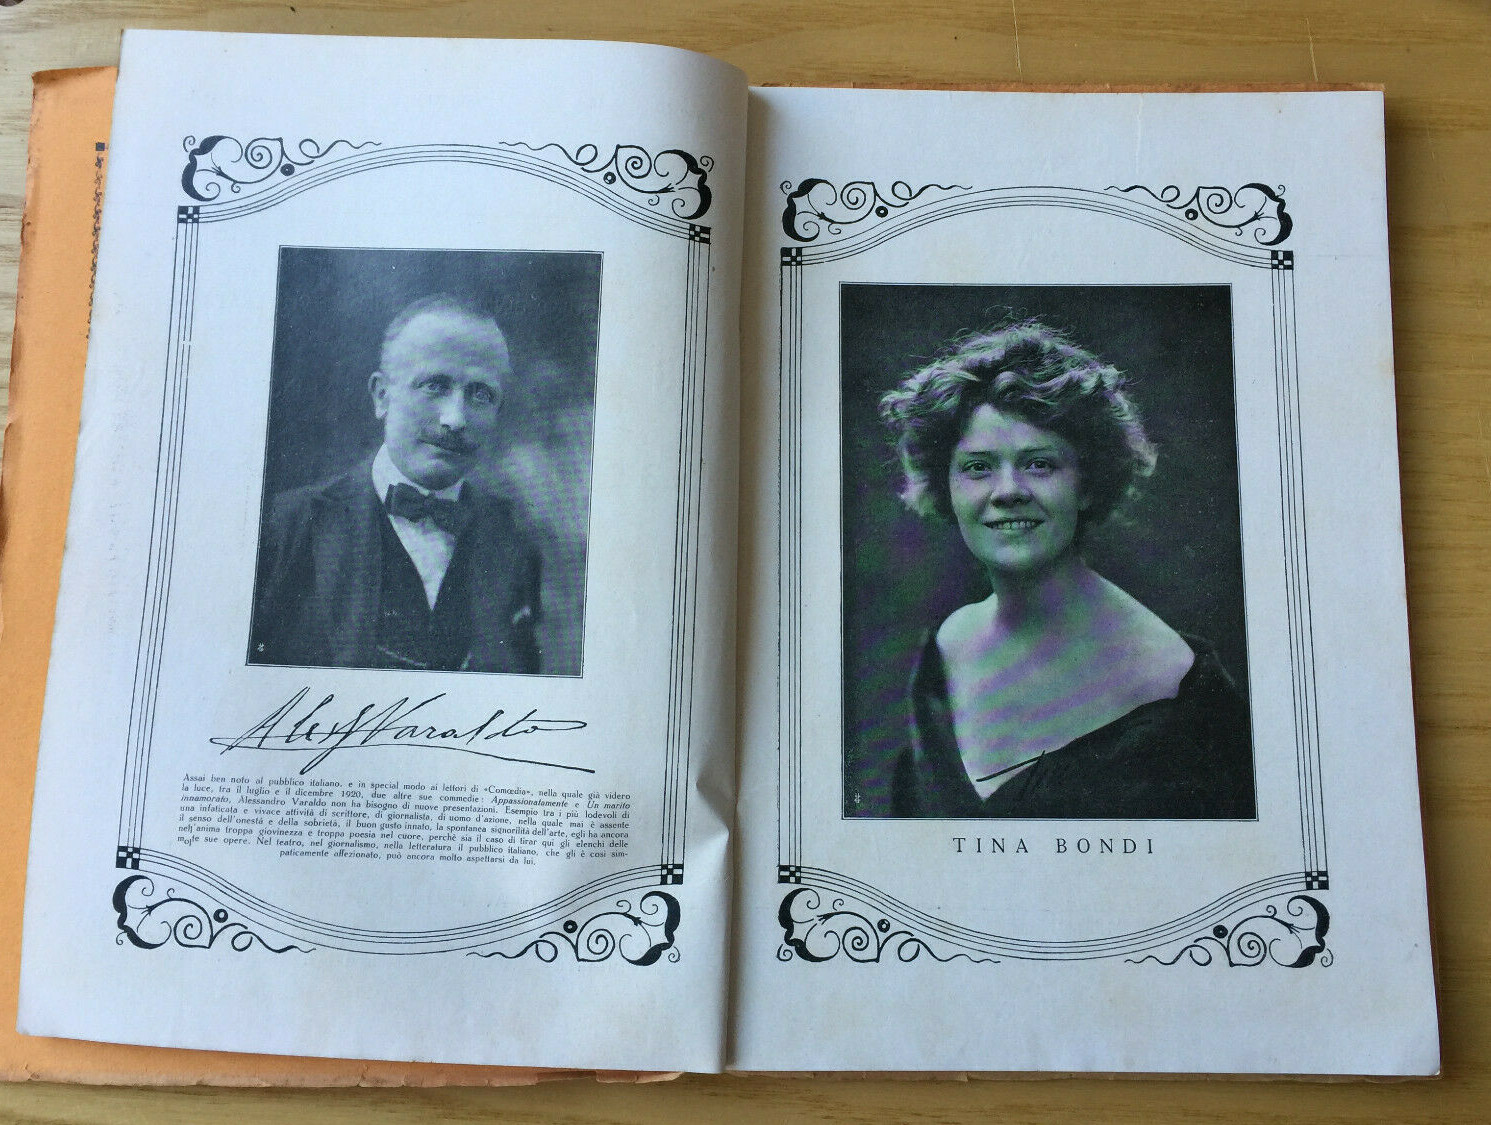 Aless Varaldo
Assai ben noto al pubblico italiano, e in special modo ai lettori di «Comœdia», nella quale già videro
la luce, tra il luglio e il dicembre 1920, due altre sue commedie: Appassionatamente e Un marito
innamorato, Alessandro Varaldo non ha bisogno di nuove presentazioni. Esempio tra i più lodevoli di
una infaticata e vivace attività di scrittore, di giornalista, di uomo d'azione, nella quale mai è assente
il senso dell'onestà e della sobrietà, il buon gusto innato, la spontanea signorilità dell'arte, egli ha ancora
nell'anima troppa giovinezza e troppa poesia nel cuore, perchè sia il caso di tirar qui gli elenchi delle
molte sue opere. Nel teatro, nel giornalismo, nella letteratura il pubblico italiano, che gli è così sim-
paticamente affezionato, può ancora molto aspettarsi da lui.
TINA BONDI